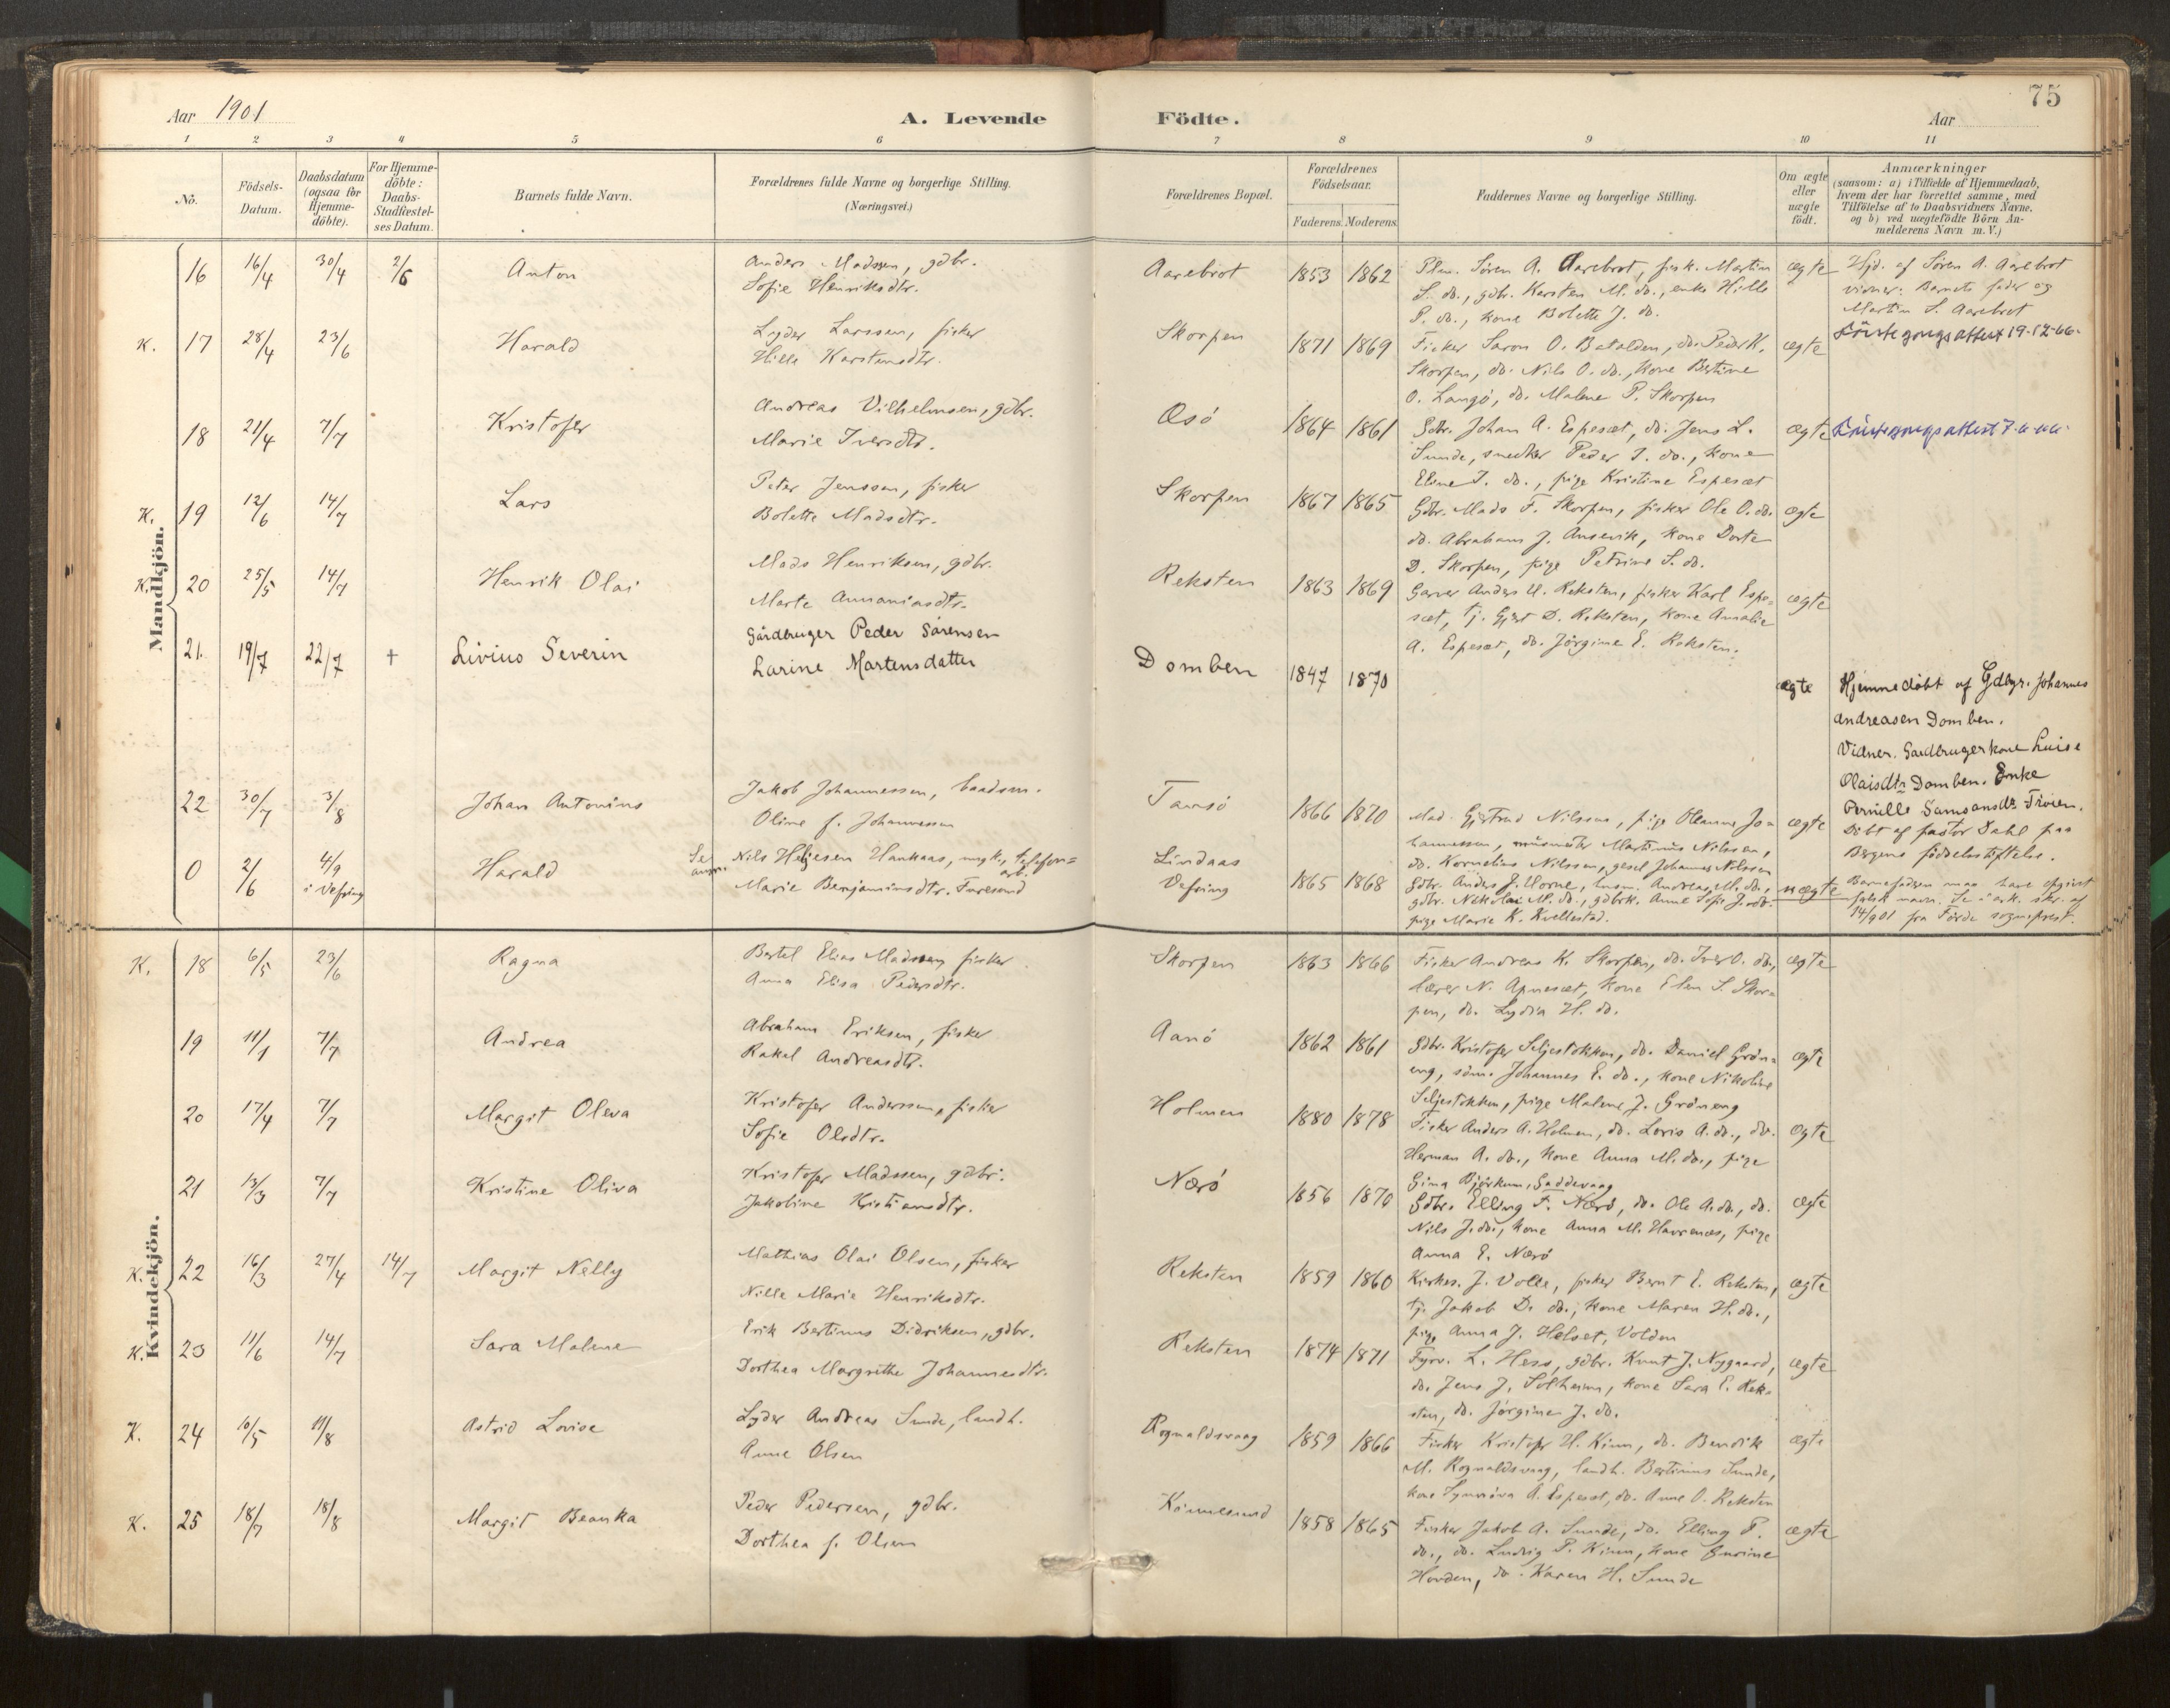 75
Aar 1901
A. Levende Födte.
Aar
1 2 3 4 5 6 7 8 9 10 11
No.
Födsels-Datum.
Daabsdatum (ogsaa for Hjemme-döbte).
For Hjemme-döbte: Daabs-Stadfæstel-ses Datum.
Barnets fulde Navn.
Forældrenes fulde Navne og borgerlige Stilling.
(Næringsvei.)
Forældrenes Bopæl.
Forældrenes Födselsaar.
Faderens. Moderens.
Faddernes Navne og borgerlige Stilling.
Om ægte eller uægte födt.
Anmærkninger
(saasom: a) i Tilfælde af Hjemmedaab,
hvem der har forrettet samme, med
Tilföielse af to Daabsvidners Navne,
og b) ved uægtefödte Börn An-
melderens Navn m. V.)
Mandkjön.
16 16/4 30/4 2/6 Anton
Anders Madssen, gdbr.
Sofie Henriksdtr.
Aarebrot 1853 1862
Søren A. Aarebrot, fisk. Martin
S. do., gdbr. Karsten M. do., enke Hille
P. do., kone Bolette J. do.
ægte
Hjd. af Søren A. Aarebrot
vidner: Barnets fader og
Martin S. Aarebrot
K. 17 28/4 23/6 Harald
Lyder Larssen, fisker
Hille Karstensdtr.
Skorpen 1871 1869
Fisker Saron O. Batalden, do. Peder K.
Skorpen, do. Nils O. do., kone Bertine
O. Langö, do. Malene P. Skorpen
ægte
19-12-66.
18 21/4 7/7 Kristofer
Andreas Vilhelmsen, gdbr.
Marie Iversdtr.
Osö 1864 1861
Gdbr. Johan A. Espesæt, do. Jens L.
Sunde, snedker Peder J. do., kone
Eline J. do., pige Kristine Espesæt
ægte
K. 19 12/6 14/7 Lars
Peter Jenssen, fisker
Bolette Madsdtr.
Skorpen 1867 1865
Gdbr. Mads F. Skorpen, fisker Ole O. do.
do. Abraham J. Ausevik, kone Dorte
D. Skorpen, pige Petrine S. do.
ægte
K. 20 25/5 14/7 Henrik Olai
Mads Henriksen, gdbr.
Marte Annaniasdtr.
Reksten 1863 1869
Garver Anders U. Reksten, fisker Karl Espe-
sæt, tj. Gjert D. Reksten, kone Annalie
A. Espesæt, do. Jörgine E. Reksten.
ægte
21. 19/7 22/7 + Livius Severin
Gårdbruger Peder Sørensen
Larine Martensdatter
Domben 1847 1870
ægte
Hjemmedöbt af Gdbgr. Johannes
Andreasen Domben.
Vidner. Gaardbrugerkone Luise
Olaisdtr Domben. Enke
Pernille Samsonsdtr
22 30/7 3/8 Johan Antonius
Jakob Johannessen, baadsm.
Oline f. Johannessen
Tansö 1866 1870
Mad. Gjertrud Nilssen, pige Oleanne Jo-
hannessen, Martinus Nilssen,
do. Kornelius Nilssen, gesel Johannes Nilssen
ægte
Döbt af pastor Dahl paa
Bergens födselsstiftelse.
0 2/6 4/9 i Vefring Harald
Se anm.
Nils Heljesen Hankaas, ungk., telefon-
arb.
Marie Benjaminsdtr. Furesund
Lindaas
Vefring
1865 1868
Gdbr. Anders J. Horne, husm. Andreas M. do.,
gdbr. Nikolai M. do., gdbrk. Anne Sofie J. do.
pige Marie K. Kvellestad.
uægte
Barnefaderen maa have opgivet
falsk navn. Se i ark. skr. af
14/9 01 fra Förde sogneprest.
Kvindekjön.
K. 18 6/5 23/6 Ragna
Bertel Elias Madssen, fisker
Anna Elisa Pedersdtr.
Skorpen 1863 1866
Fisker Andreas K. Skorpen, do. Iver O. do.,
lærer N. Apnesæt, kone Elen S. Skor-
pen, do. Lydia H. do.
ægte
19 11/1 7/7 Andrea
Abraham Eriksen, fisker
Rakel Andreasdtr.
Aanö 1862 1861
Gdbr. Kristofer Seljestokken, do. Daniel Grön-
eng, söm. Johannes E. do., kone Nikoline
Seljestokken, pige Malene J. Gröneng
ægte
20 17/4 7/7 Margit Oleva
Kristofer Anderssen, fisker
Sofie Olsdtr.
Holmen 1880 1878
Fisker Anders A. Holmen, do. Lovis A. do., do.
Herman A. do., kone Anna M. do., pige
Gina Björkum, Gaddevaag
ægte
21 13/3 7/7 Kristine Oliva
Kristofer Madssen, gdbr.
Jakobine Kristiansdtr.
Nærö 1856 1870
Gdbr. Elling F. Nærö, do. Ole A. do., do.
Nils J. do., kone Anna M. Havrenæs, pige
Anna E. Nærö
ægte
K. 22 16/3 27/4 14/7 Margit Nelly
Mathias Olai Olsen, fisker
Nille Marie Henriksdtr.
Reksten 1859 1860
Kirkes. J. Volle, fisker Bernt E. Reksten,
tj. Jakob D. do., kone Maren H. do.,
pige Anna J. Helset, Volden
ægte
K. 23 11/6 14/7 Sara Malene
Erik Bertinus Didriksen, gdbr.
Dorthea Margrethe Johannesdtr.
Reksten 1874 1871
Fyrv. L. Hess, gdbr. Knut J. Nygaard,
do. Jens J. Solheim, kone Sara E. Rek-
sten, do. Jörgine J. do.
ægte
K. 24 10/5 11/8 Astrid Lovise
Lyder Andreas Sunde, landh.
Anne Olsen
Rognaldsvaag 1859 1866
Fisker Kristofer H. Kinn, do. Bendik
M. Rognaldsvaag, landh. Bertinus Sunde,
kone Synnöva A. Espeset, do. Anne O. Reksten
ægte
K. 25 18/7 18/8 Margit Beanka
Peder Pedersen, gdbr.
Dorthea f. Olsen
1858 1865
Fisker Jakob A. Sunde, do. Elling P.
do., do. Ludvig P. Kinn, kone Gurine
Hovden, do. Karen H. Sunde
ægte